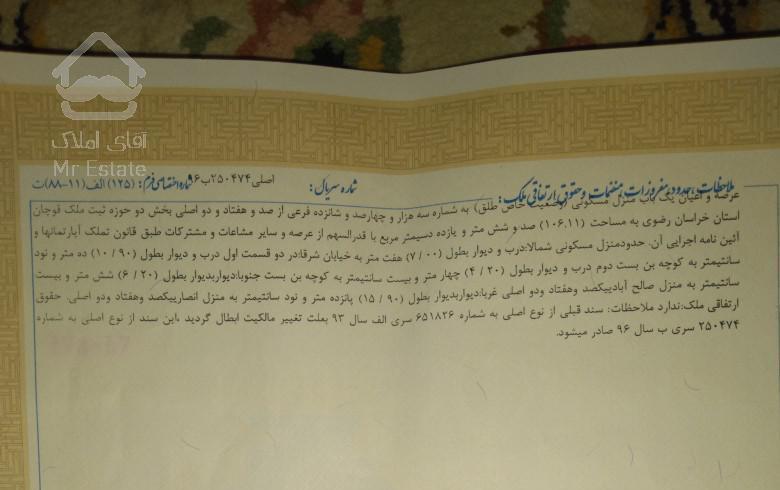 آقای املاک
Mr Estate
ملاحظات، حدود، مفروزات، منضمات و حقوق ارتفاقی ملک: شماره سریال: اصلی۲۵۰۴۷۴ب۹۶ شماره اختصاصی فرم: (۱۲۵) الف(۱۱-۸۸)ت
عرصه و اعیان یک باب منزل مسکونی (وضعیت خاص طلق) به شماره سه هزار و چهارصد و شانزده فرعی از صد و هفتاد و دو اصلی بخش دو حوزه ثبت ملک قوچان
استان خراسان رضوی به مساحت (۱۰۶,۱۱) صد و شش متر و یازده دسیمتر مربع با قدرالسهم از عرصه و سایر مشاعات و مشترکات طبق قانون تملک آپارتمانها و
آئین نامه اجرایی آن. حدودمنزل مسکونی شمالا:درب و دیوار بطول (۰۰ / ۷) هفت متر به خیابان شرقا:در دو قسمت اول درب و دیوار بطول (۹۰ / ۱۰) ده متر و نود
سانتیمتر به کوچه بن بست دوم درب و دیوار بطول (۲۰ / ۴) چهار متر و بیست سانتیمتر به کوچه بن بست جنوبا:دیواربدیوار بطول (۲۰ / ۶) شش متر و بیست
سانتیمتر به منزل صالح آبادییکصد وهفتاد ودو اصلی غربا:دیواربدیوار بطول (۹۰ / ۱۵) پانزده متر و نود سانتیمتر به منزل انصارییکصد وهفتاد ودو اصلی. حقوق
ارتفاقی ملک:ندارد ملاحظات: سند قبلی از نوع اصلی به شماره ۶۵۱۸۲۶ سری الف سال ۹۳ بعلت تغییر مالکیت ابطال گردید ،این سند از نوع اصلی به شماره
۲۵۰۴۷۴ سری ب سال ۹۶ صادر میشود.